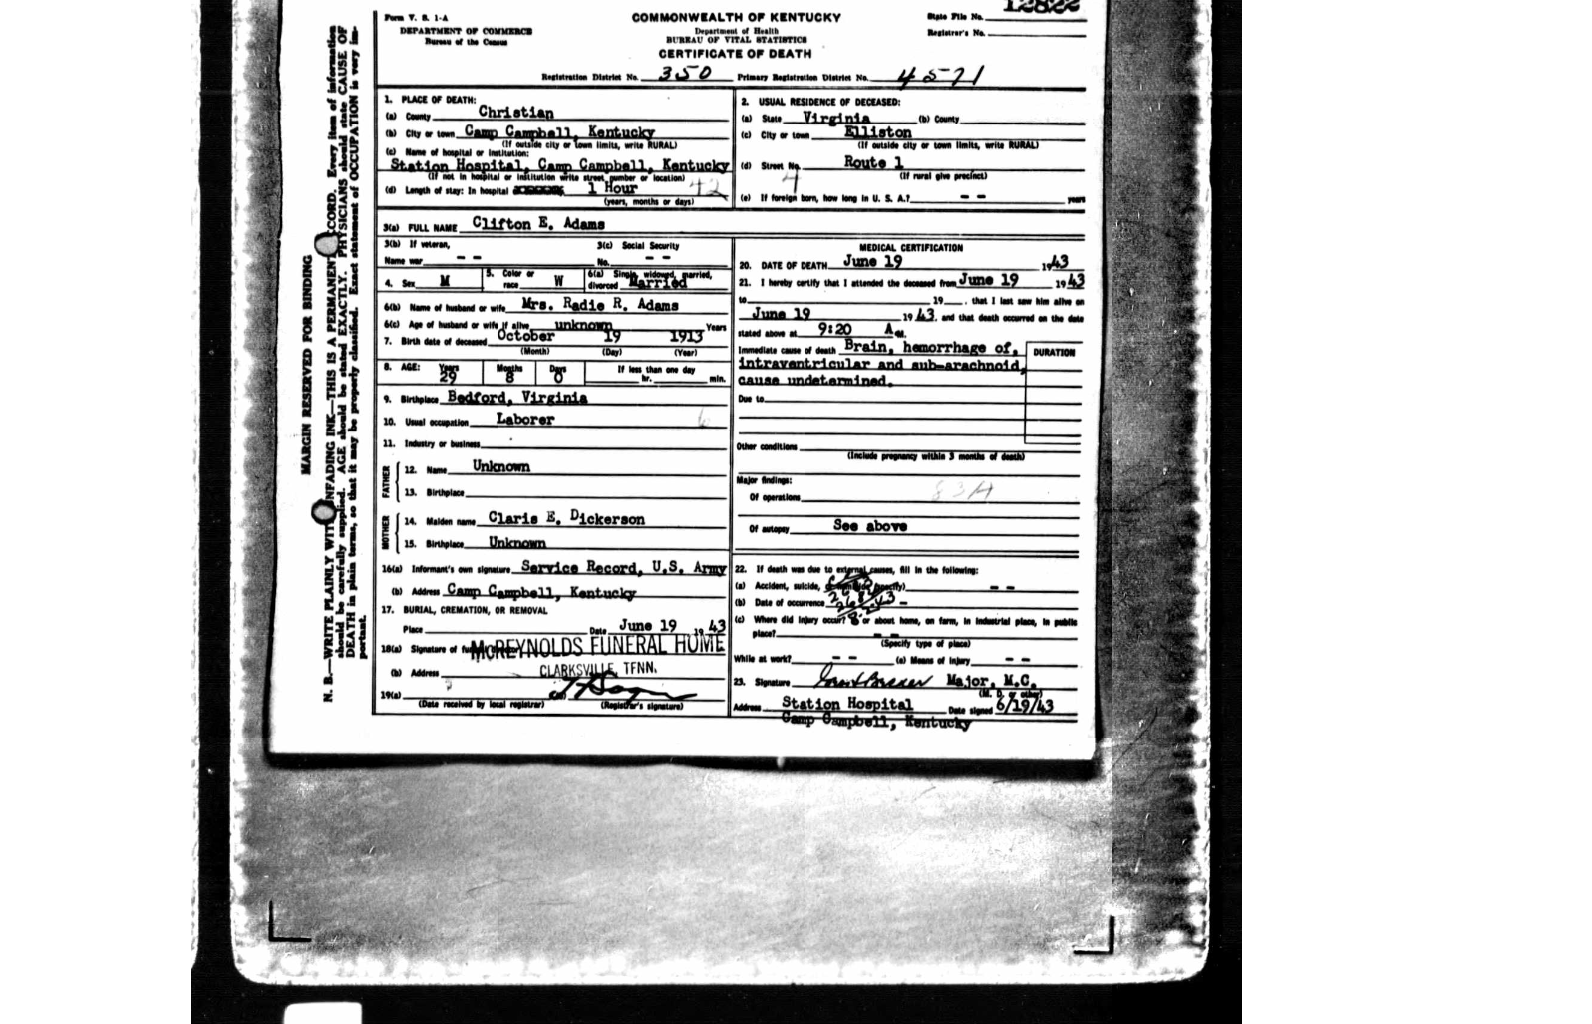 12822
Form V. S. 1-A
DEPARTMENT OF COMMERCE
Bureau of the Census
COMMONWEALTH OF KENTUCKY
Department of Health
BUREAU OF VITAL STATISTICS
CERTIFICATE OF DEATH
State File No.
Registrar's No.
Registration District No. 350 Primary Registration District No. 4571
MARGIN RESERVED FOR BINDING
N. B.—WRITE PLAINLY WITH UNFADING INK—THIS IS A PERMANENT RECORD. Every item of information
should be carefully supplied. AGE should be stated EXACTLY. PHYSICIANS should state CAUSE OF
DEATH in plain terms, so that it may be properly classified. Exact statement of OCCUPATION is very im-
portant.
1. PLACE OF DEATH:
(a) County Christian
(b) City or town Camp Campbell, Kentucky
(If outside city or town limits, write RURAL)
(c) Name of hospital or institution:
Station Hospital, Camp Campbell, Kentucky
(If not in hospital or institution write street number or location)
(d) Length of stay: In hospital 1 Hour 42
(years, months or days)
2. USUAL RESIDENCE OF DECEASED:
(a) State Virginia (b) County
(c) City or town Elliston
(If outside city or town limits, write RURAL)
(d) Street No. Route 1
4 (If rural give precinct)
(e) If foreign born, how long in U. S. A.? - - years
3(a) FULL NAME Clifton E. Adams
3(b) If veteran, 3(c) Social Security
Name war - - No. - -
4. Sex M 5. Color or race W 6(a) Single, widowed, married, divorced Married
6(b) Name of husband or wife Mrs. Radie R. Adams
6(c) Age of husband or wife if alive unknown Years
7. Birth date of deceased October 19 1913
(Month) (Day) (Year)
8. AGE: Years 29 Months 8 Days 0 If less than one day
hr. min.
9. Birthplace Bedford, Virginia
10. Usual occupation Laborer 6
11. Industry or business
FATHER
12. Name Unknown
13. Birthplace
MOTHER
14. Maiden name Claris E. Dickerson
15. Birthplace Unknown
16(a) Informant's own signature Service Record, U.S. Army
(b) Address Camp Campbell, Kentucky
17. BURIAL, CREMATION, OR REMOVAL
Place Date June 19 1943
18(a) Signature of McREYNOLDS FUNERAL HOME
(b) Address CLARKSVILLE, TENN.
19(a)
(Date received by local registrar) (Registrar's signature)
MEDICAL CERTIFICATION
20. DATE OF DEATH June 19 1943
21. I hereby certify that I attended the deceased from June 19 1943
to 19 , that I last saw him alive on
June 19 1943, and that death occurred on the date
stated above at 9:20 A m.
Immediate cause of death Brain, hemorrhage of, DURATION
intraventricular and sub-arachnoid,
cause undetermined.
Due to
Other conditions
(Include pregnancy within 3 months of death)
Major findings:
Of operations 83A
Of autopsy See above
22. If death was due to external causes, fill in the following:
(a) Accident, suicide, - -
(b) Date of occurrence -
(c) Where did injury occur? or about home, on farm, in industrial place, in public
place? - -
(Specify type of place)
While at work? - - (e) Means of injury - -
23. Signature Major, M.C.
(M. D. or other)
Address Station Hospital Date signed 6/19/43
Camp Campbell, Kentucky